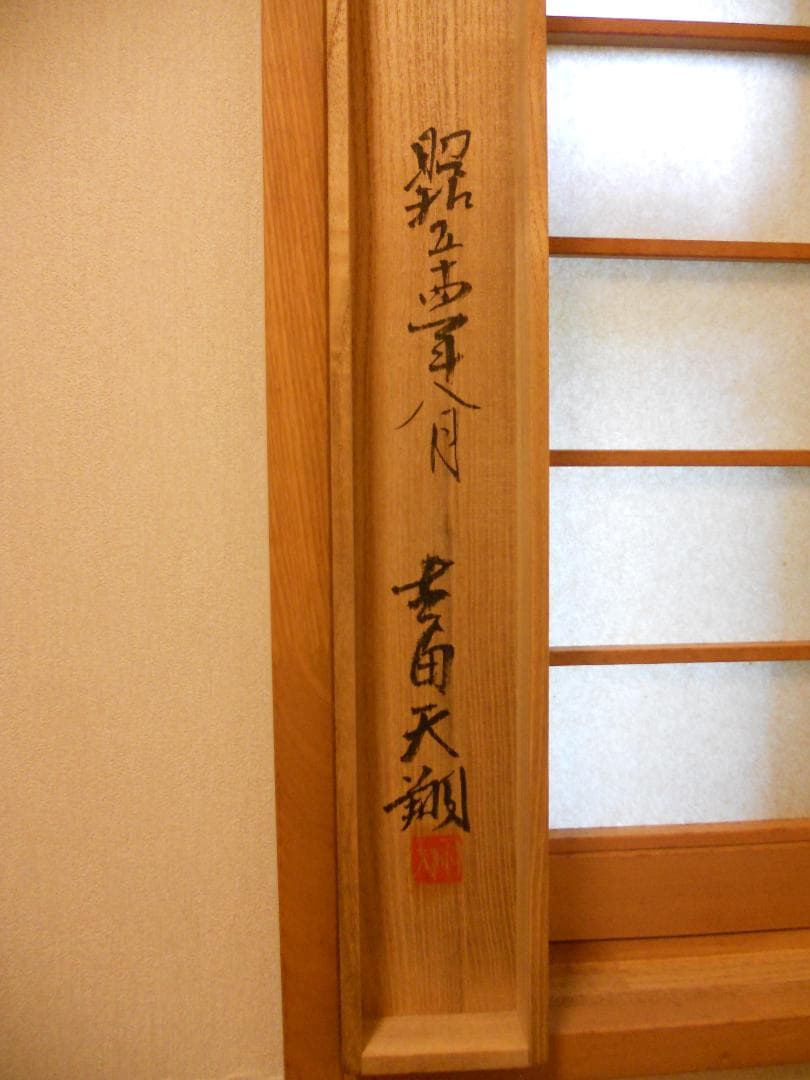 昭和五十四年八月
吉田天翔